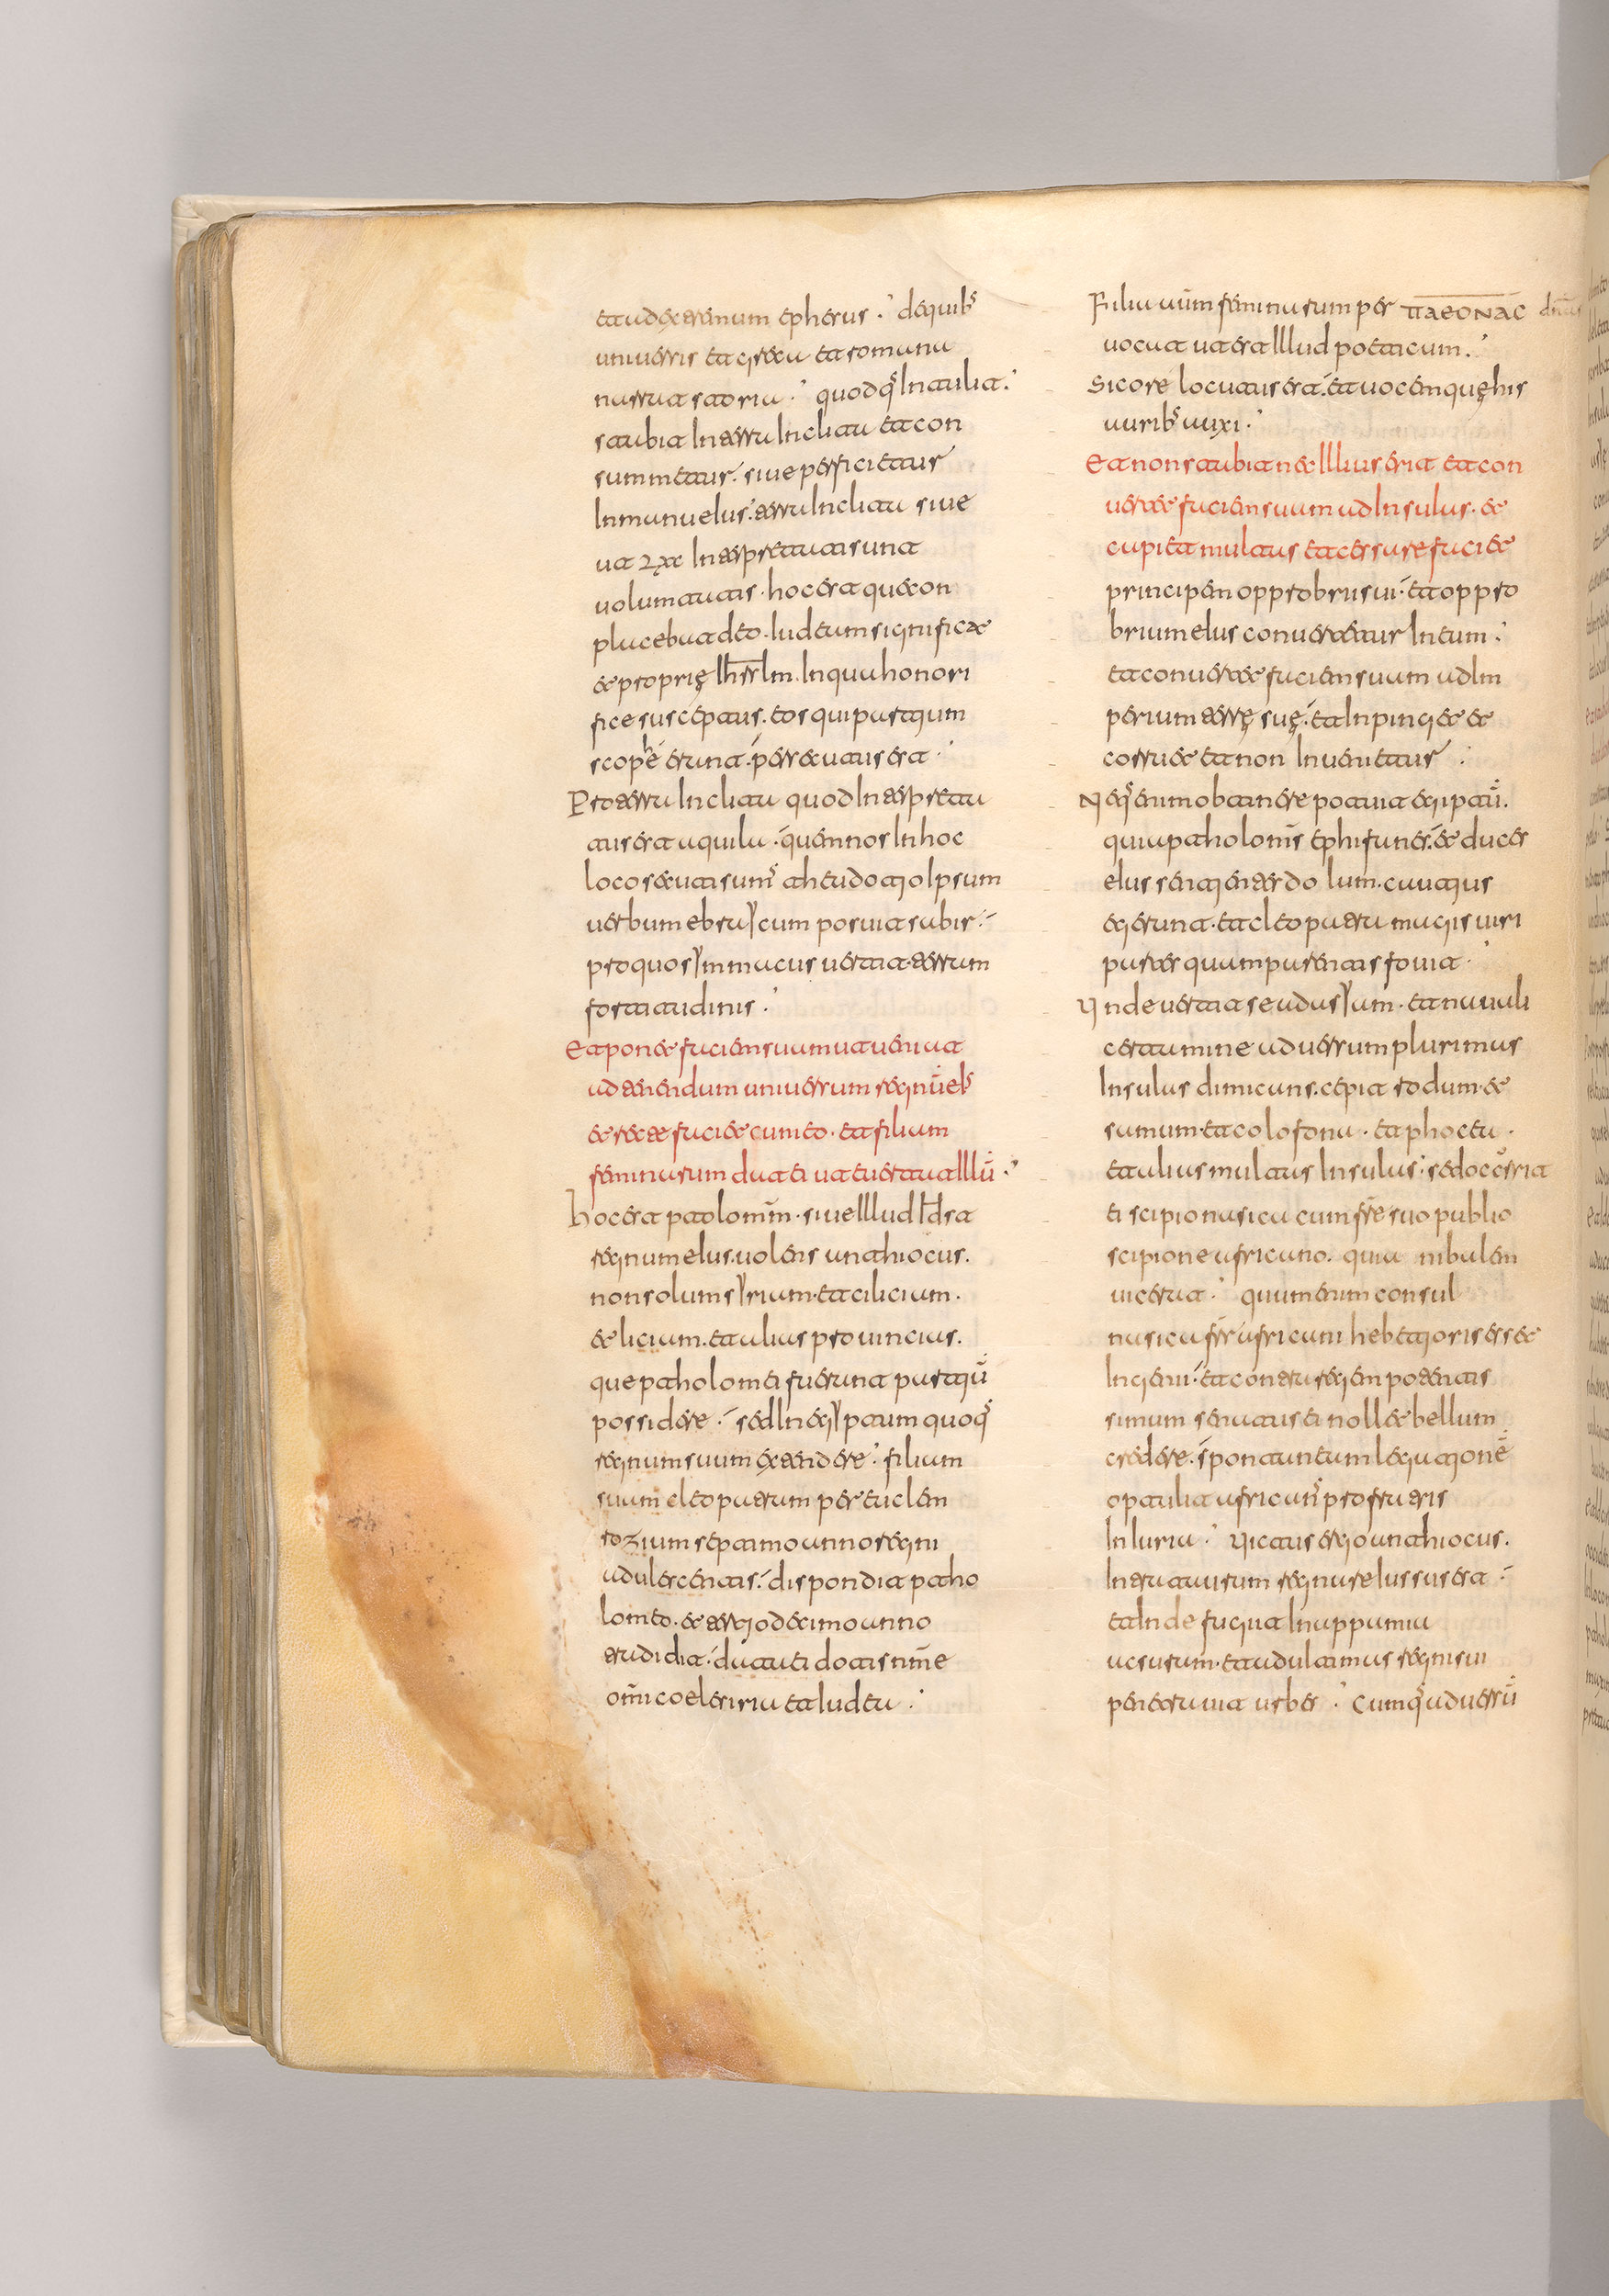 et ad extremum epheras. de quib;
universis et greca et romana
narrat storia. quodq; intulit.
stabit in terra inclita et con
summetur. sive perficietur
in manu eius. terra inclita sive
ut lxx interpretati sunt
volumtatis. hoc est que con
placebat deo. iudeam significat
et proprię ihrslm. in qua honori
fice susceptus. eos qui partium
scophe erant. persecutus est.
Pro terra inclita quod interpreta
tus est aquila. quem nos in hoc
loco secuti sum; theudotio ipsum
verbum ebraycum posuit sabir.
pro quo symmacus vertit. terram
fortitudinis.
Et ponet faciem suam ut veniat
ad tenendum universum regnū ei;
et recta faciet cum eo. et filiam
feminarum dabit ei ut evertat illū.
hoc est ptolomm̄. sive illud id̄ est
regnum eius. volens antiochus.
non solum syriam. et ciliciam.
et liciam. et alias provincias.
que ptholomei fuerant partiū
possidere. sed in egyptum quoq;
regnum suum extendere. filiam
suam cleopatram per euclen
rozium septimo anno regni
adulescentis. dispondit ptho
lomeo. et tertiodecimo anno
tradidit. data ei dotis nm̄e
om̄i coelesiria et iudea.
Filia aūm feminarum per
vocat ut est illud poeticum.
Sic ore locutus est. et vocem quę his
auribs auxi.
Et non stabit nec illius erit et con
vertet faciem suam ad insulas. et
capiet multas et cessare faciet
principem opprobrii sui. et oppro
brium eius convertetur in eum.
et convertet faciem suam ad im
perium terrę suę. et inpinget et
corruet et non invenietur.
Neq; enim obtinere potuit egiptū.
quia ptholom̄s ephifanes. et duces
eius sentientes dolum. cautius
egerunt. et cleopatra magis viri
partes quam parentis fovit.
Unde vertit se ad asyam. et navali
certamine adversum plurimas
insulas dimicans. cepit rodum. et
samum. et colofona. et phocea.
et alias multas insulas. sed occurrit
ei scipio nasica cum fr̄e suo publio
scipione africano. qui annibalem
vicerat. quum enim consul
nasica fr̄r africani hebetioris esset
ingenii. et contra regem potentis
simum senatus ei nollet bellum
credere. spontaneam legationē
optulit african; pro fratris
iniuria. victus ergo antiochus.
intra taurum regnare iussus est.
et inde fugit in appamia
ac susam. et ad ultimas regni sui
penetravit urbes. Cumq; adversū